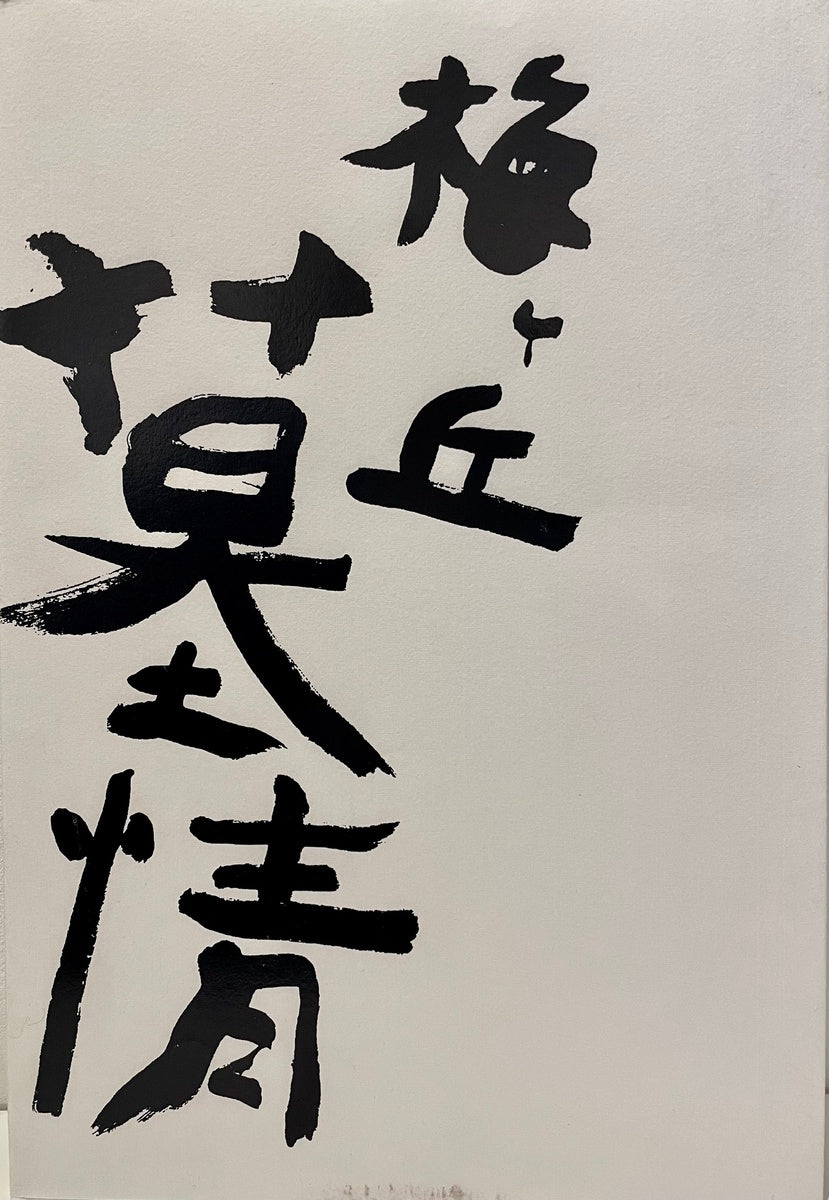 梅ヶ丘
墓情